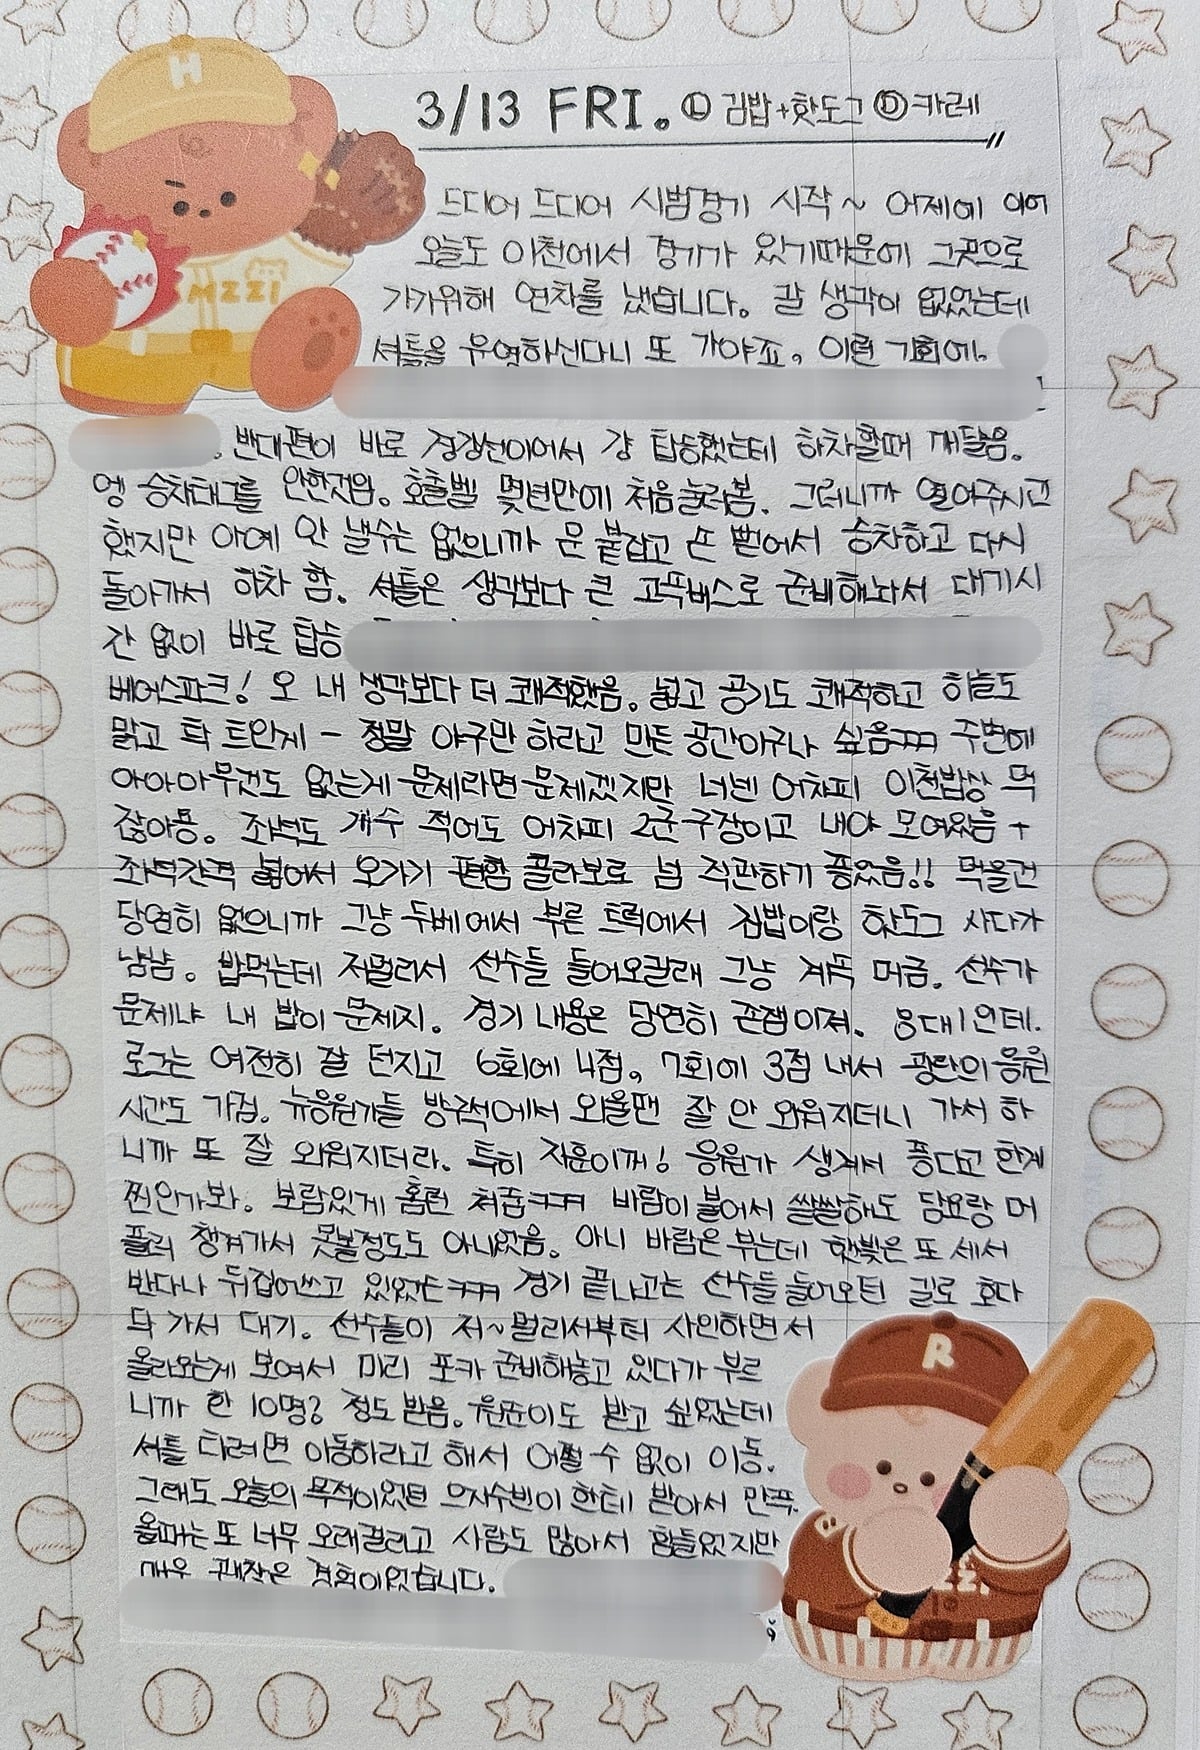 3/13 FRI. Ⓛ 김밥+핫도그 Ⓓ 카레
드디어 드디어 시범경기 시작~ 어제에 이어
오늘도 이천에서 경기가 있기때문에 그곳으로
가기위해 연차를 냈습니다. 갈 생각이 없었는데
셔틀을 운영하신다니 또 가야죠. 이런 기회에.
. 반대편이 바로 경강선이어서 걍 탑승했는데 하차할때 깨달음.
엥 승차태그를 안한것임. 호출벨 몇년만에 처음 눌러봄. 그러니까 열어주시긴
했지만 아예 안 낼수는 없으니까 문 붙잡고 손 뻗어서 승차하고 다시
돌아가서 하차 함. 셔틀은 생각보다 큰 고픅버스로 준비해놔서 대기시
간 없이 바로 탑승
베어스파크! 오 내 생각보다 더 쾌적했음. 넓고 공기도 쾌적하고 하늘도
맑고 탁 트인게 - 정말 야구만 하라고 만든 공간이구나 싶음ㅋㅋㅋ 주변에
아아아무것도 없는게 문제라면 문제겠지만 너넨 어차피 이천밥상 먹
잖아용. 좌석도 개수 적어도 어차피 2군구장이고 내야 모여있음 +
좌석간격 넓어서 오가기 편함 콜라보로 넘 직관하기 좋았음!! 먹을건
당연히 없으니까 그냥 두베에서 부른 트럭에서 김밥이랑 핫도그 사다가
냠냠. 밥먹는데 저멀리서 선수들 들어오길래 그냥 계속 머금. 선수가
문제냐 내 밥이 문제지. 경기 내용은 당연히 존잼이져. 응대1인데.
로그는 여전히 잘 던지고 6회에 4점, 7회에 3점 내서 광란의 응원
시간도 가짐. 뉴응원가들 방구석에서 외울땐 잘 안 외워지더니 가서 하
니까 또 잘 외워지더라. 특히 지훈이꺼! 응원가 생겨서 좋다고 한게
찐인가봐. 보람있게 홈런 쳐줌ㅋㅋㅋ 바람이 불어서 쌀쌀해도 담요랑 머
플러 챙겨가서 못볼정도도 아니었음. 아니 바람은 부는데 햇빛은 또 세서
반다나 뒤집어쓰고 있었는ㅋㅋㅋ 경기 끝나고는 선수들 들어오던 길로 호다
닥 가서 대기. 선수들이 저~멀리서부터 사인하면서
올라오는게 보여서 미리 포카 준비해놓고 있다가 부르
니까 한 10명? 정도 받음. 유준이도 받고 싶었는데
셔틀 타려면 이동하라고 해서 어쩔 수 없이 이동.
그래도 오늘의 목적이었던 으지수빈이 한테 받아서 만족.
올때는 또 너무 오래걸리고 사람도 많아서 힘들었지만
매우 괜찮은 경험이었습니다.